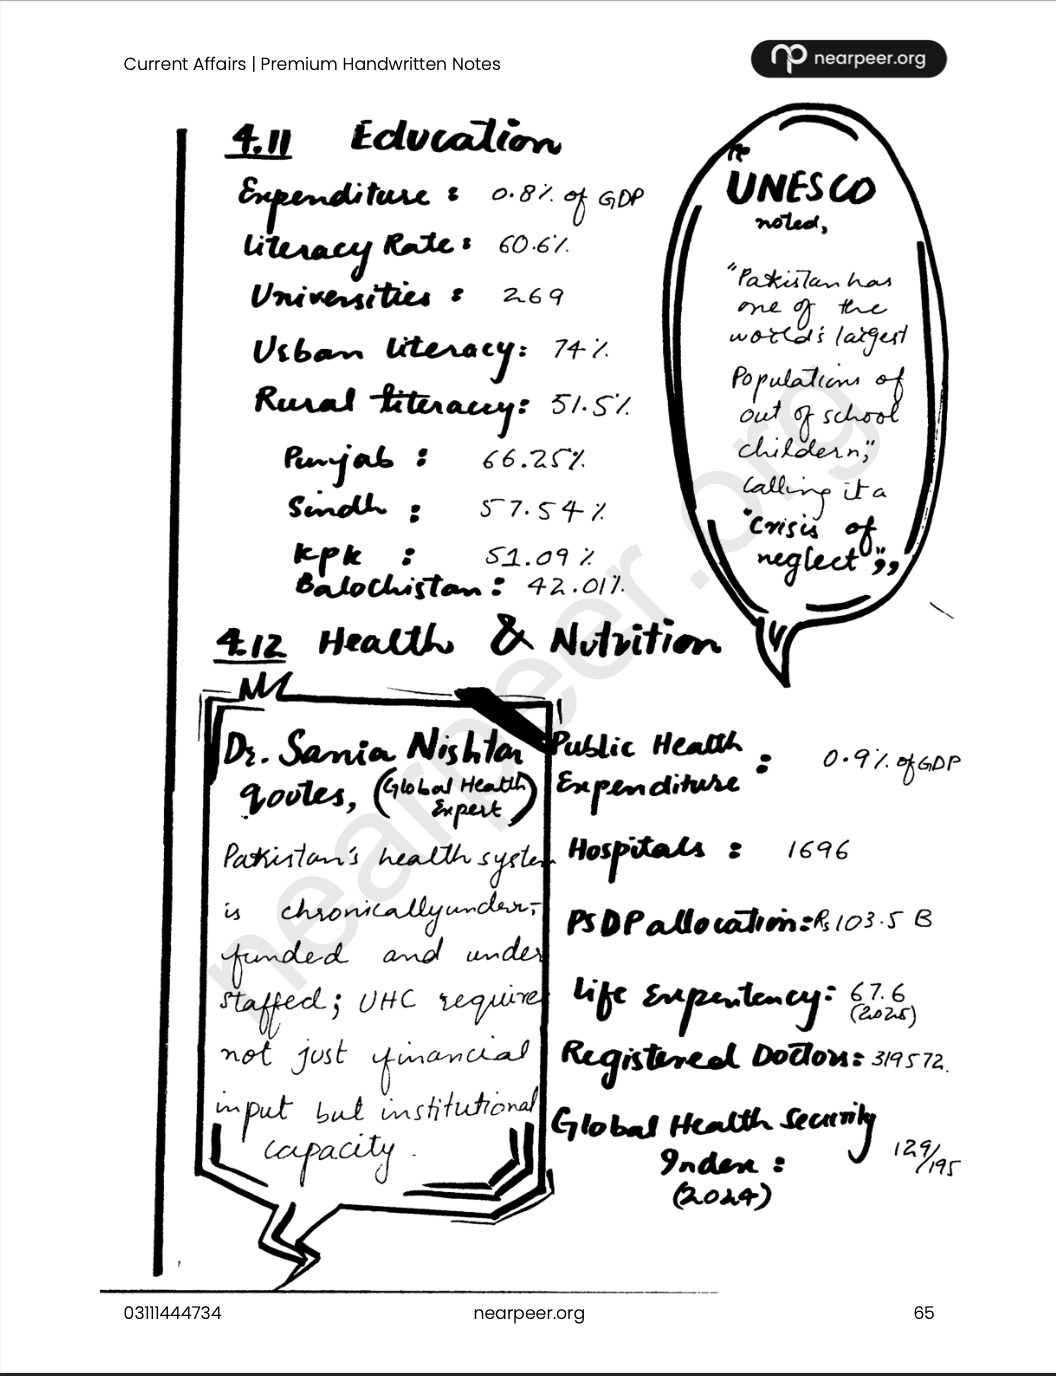 Current Affairs | Premium Handwritten Notes
nearpeer.org
4.11 Education
Expenditure : 0.8% of GDP
Literacy Rate : 60.6%
Universities : 269
Urban literacy: 74%
Rural literacy: 51.5%
Punjab : 66.25%
Sindh : 57.54%
KPK : 51.09%
Balochistan: 42.01%
The
UNESCO
noted,
"Pakistan has
one of the
world's largest
Populations of
out of school
childern,"
calling it a
"Crisis of
neglect",,
4.12 Health & Nutrition
Dr. Sania Nishtar
qoutes, (Global Health
Expert)
Pakistan's health system
is chronically under-
funded and under
staffed; UHC require
not just financial
input but institutional
capacity.
Public Health
Expenditure : 0.9% of GDP
Hospitals : 1696
PSDP allocation: Rs 103.5 B
Life Expentency: 67.6
(2025)
Registered Doctors: 319572.
Global Health Security
Index : 129/195
(2024)
nearpeer.org
03111444734
nearpeer.org
65